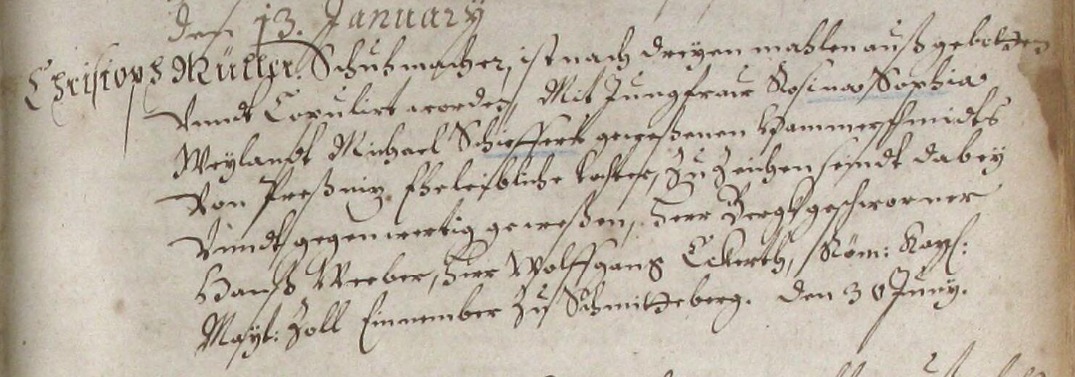 Den 13. January
Christoph Müller Schuhmacher, ist nach dreyen mahlen auß gebotten
Vnndt Copulirt worden, Mit Jungfraw Rosina Sophia
Weylandt Michael Schiefferts geweßenen Hammerschmidts
Von Preßnitz Eheleibliche tochter, Zu Zeichen seindt dabey
Vnndt gegenwertig geweßen, Herr Bergkgeschworner
Hanß Weeber, Herr Wolffgang Eckerth, Röm: Kayß:
Mayt: Zoll Einnember Zu Schmitteberg. Den 30 Juny.